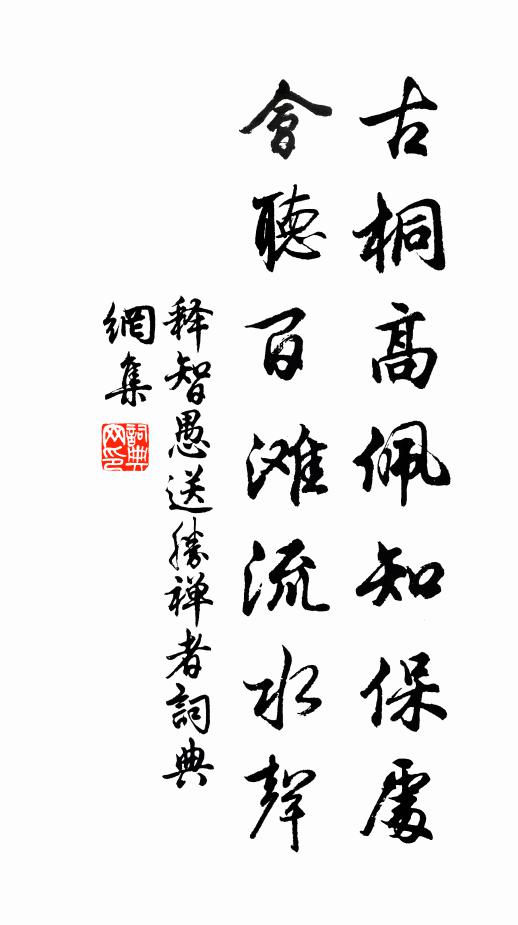 古桐高佩知保處
會聽百滩流水聲
释智愚送勝禅者詞典
網集
詞典網印